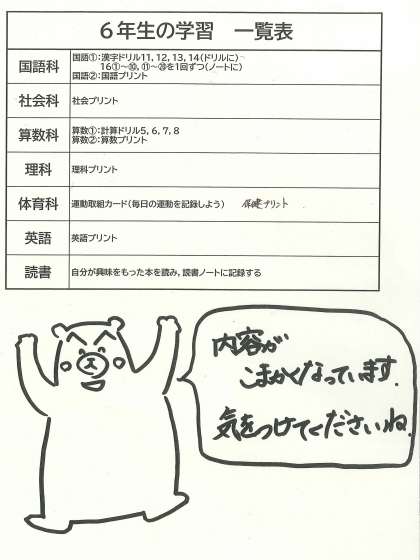 ６年生の学習　一覧表
国語科
国語①:漢字ドリル11，12，13，14(ドリルに)
16①～⑩，⑪～⑳を1回ずつ(ノートに)
国語②:国語プリント
社会科
社会プリント
算数科
算数①:計算ドリル5，6，7，8
算数②:プリント
理科
理科プリント
体育科
運動取組カード(毎日の運動を記録しよう)　保健プリント
英語
英語プリント
読書
自分が興味をもった本を読み，読書ノートに記録する
内容が
こまかくなっています.
気をつけてくださいね.